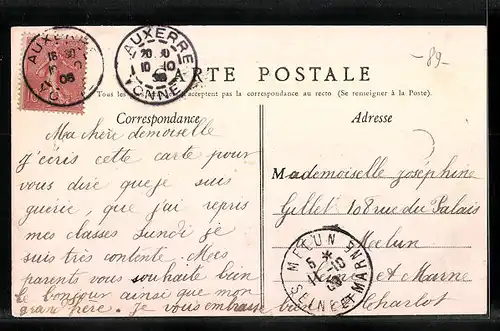 AUXERRE
YONNE
08
AUXERRE
20 10
10 10
08
YONNE
89
CARTE POSTALE
Tous les pays n'acceptent pas la correspondance au recto (Se renseigner à la Poste).
Correspondance
Adresse
Ma chère demoiselle
J'écris cette carte pour
vous dire que je suis
guerie, que j'ai repris
mes classes Lundi je
suis très contente. Mes
parents vous souhaite bien
le bonjour ainsi que mon
grand père. Je vous embrasse bien
Charlot
Mademoiselle Joséphine
Gillet 108 rue du Palais
Melun
et Marne
MELUN
SEINE ET MARNE